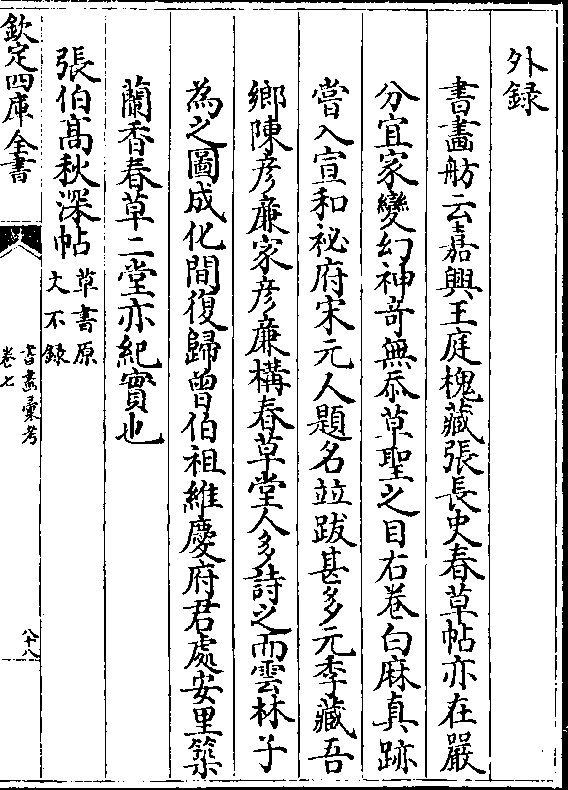 外録
書畫舫云嘉興王庭槐藏張長史春草帖亦在嚴
分宜家變幻神竒無忝草聖之目右卷白麻真跡
嘗入宣和祕府宋元人題名竝跋甚多元季藏吾
鄉陳彦廉家彦廉構春草堂人多詩之而雲林子
為之圖成化間復歸曾伯祖維慶府君處安里築
蘭香春草二堂亦紀實也
張伯髙秋深帖草書原
文不錄
欽定四庫全書
書畫彙考
卷七
八十八